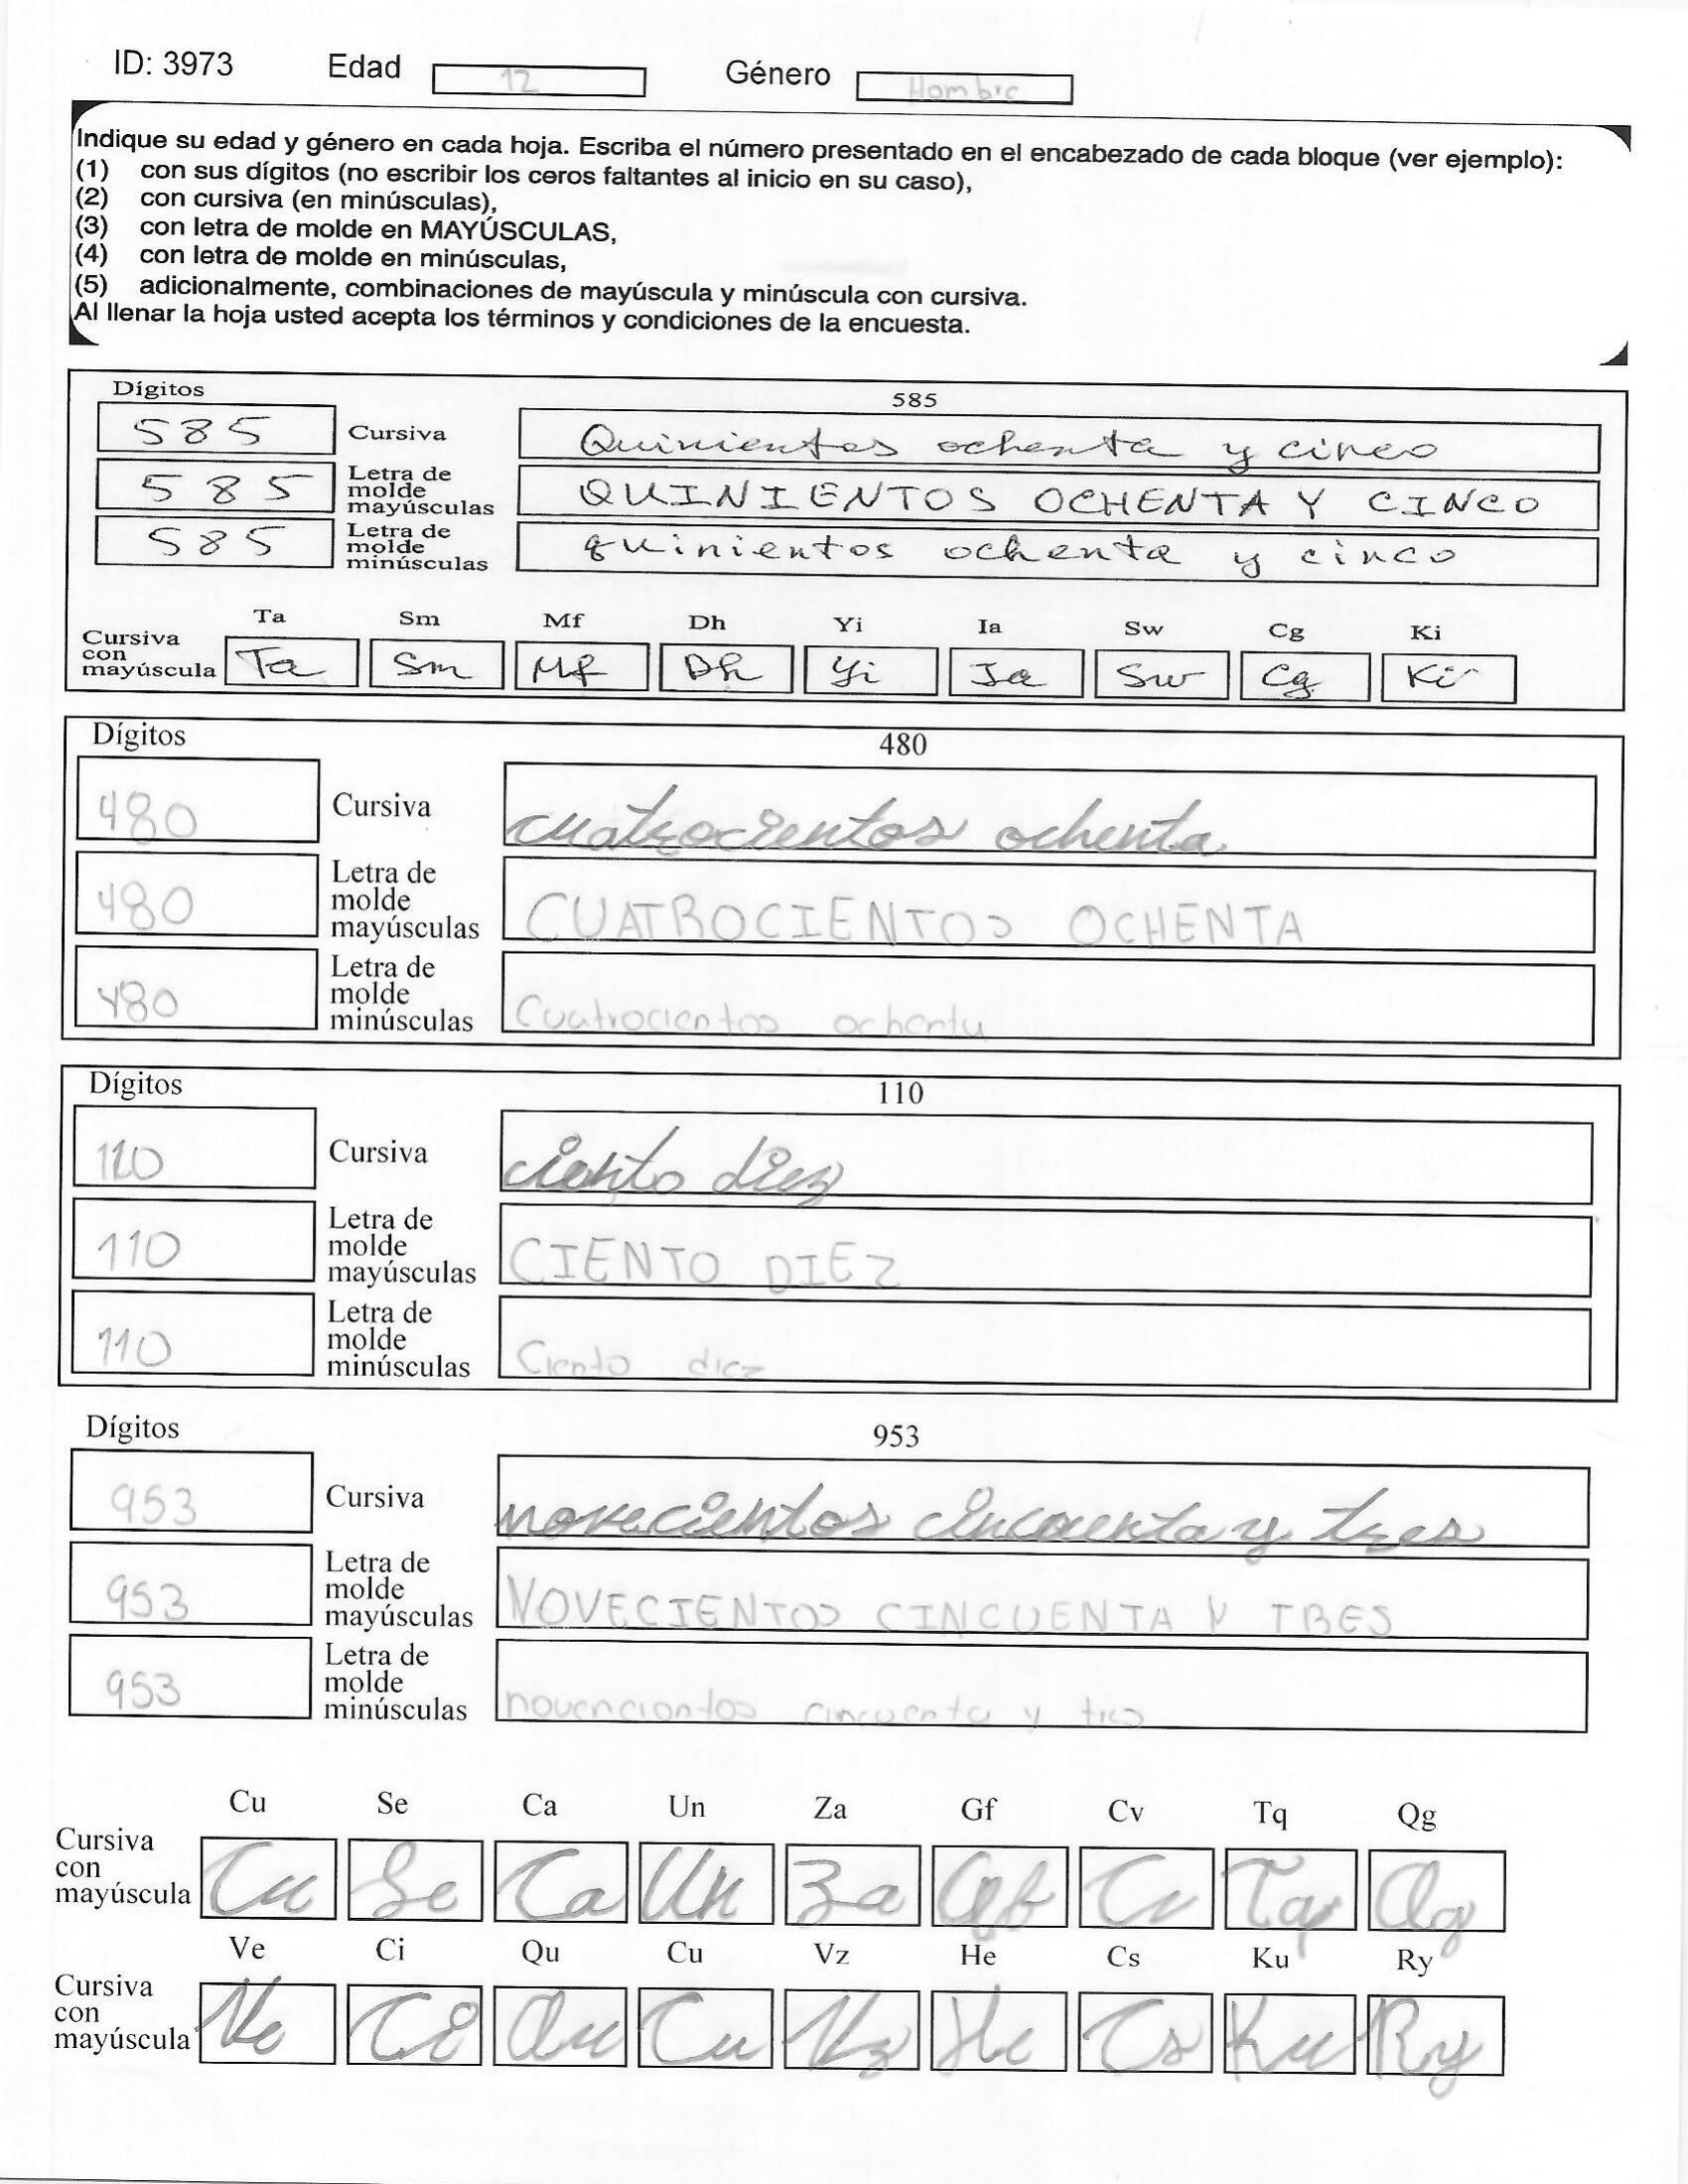 ID: 3973 Edad 12 Género Hombre
Indique su edad y género en cada hoja. Escriba el número presentado en el encabezado de cada bloque (ver ejemplo):
(1) con sus dígitos (no escribir los ceros faltantes al inicio en su caso),
(2) con cursiva (en minúsculas),
(3) con letra de molde en MAYÚSCULAS,
(4) con letra de molde en minúsculas,
(5) adicionalmente, combinaciones de mayúscula y minúscula con cursiva.
Al llenar la hoja usted acepta los términos y condiciones de la encuesta.
Dígitos 585
585 Cursiva Quinientos ochenta y cinco
585 Letra de molde mayúsculas QUINIENTOS OCHENTA Y CINCO
585 Letra de molde minúsculas quinientos ochenta y cinco
Ta Sm Mf Dh Yi Ia Sw Cg Ki
Cursiva con mayúscula Ta Sm Mf Dh Yi Ia Sw Cg Ki
Dígitos 480
480 Cursiva cuatrocientos ochenta
480 Letra de molde mayúsculas CUATROCIENTOS OCHENTA
480 Letra de molde minúsculas Cuatrocientos ochenta
Dígitos 110
110 Cursiva ciento diez
110 Letra de molde mayúsculas CIENTO DIEZ
110 Letra de molde minúsculas Ciento diez
Dígitos 953
953 Cursiva novecientos cincuenta y tres
953 Letra de molde mayúsculas NOVECIENTOS CINCUENTA Y TRES
953 Letra de molde minúsculas novenciontos cincuenta y tres
Cu Se Ca Un Za Gf Cv Tq Qg
Cursiva con mayúscula Cu Se Ca Un Za Gf Cv Tq Qg
Ve Ci Qu Cu Vz He Cs Ku Ry
Cursiva con mayúscula Ve Ci Qu Cu Vz He Cs Ku Ry